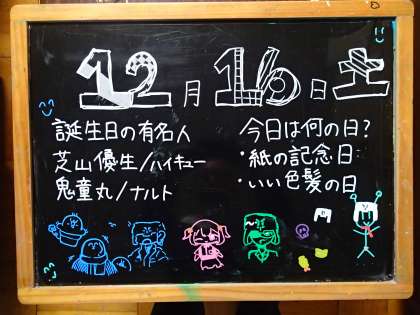 12月16日土
誕生日の有名人
芝山優生/ハイキュー
鬼童丸/ナルト
今日は何の日?
・紙の記念日
・いい色髪の日